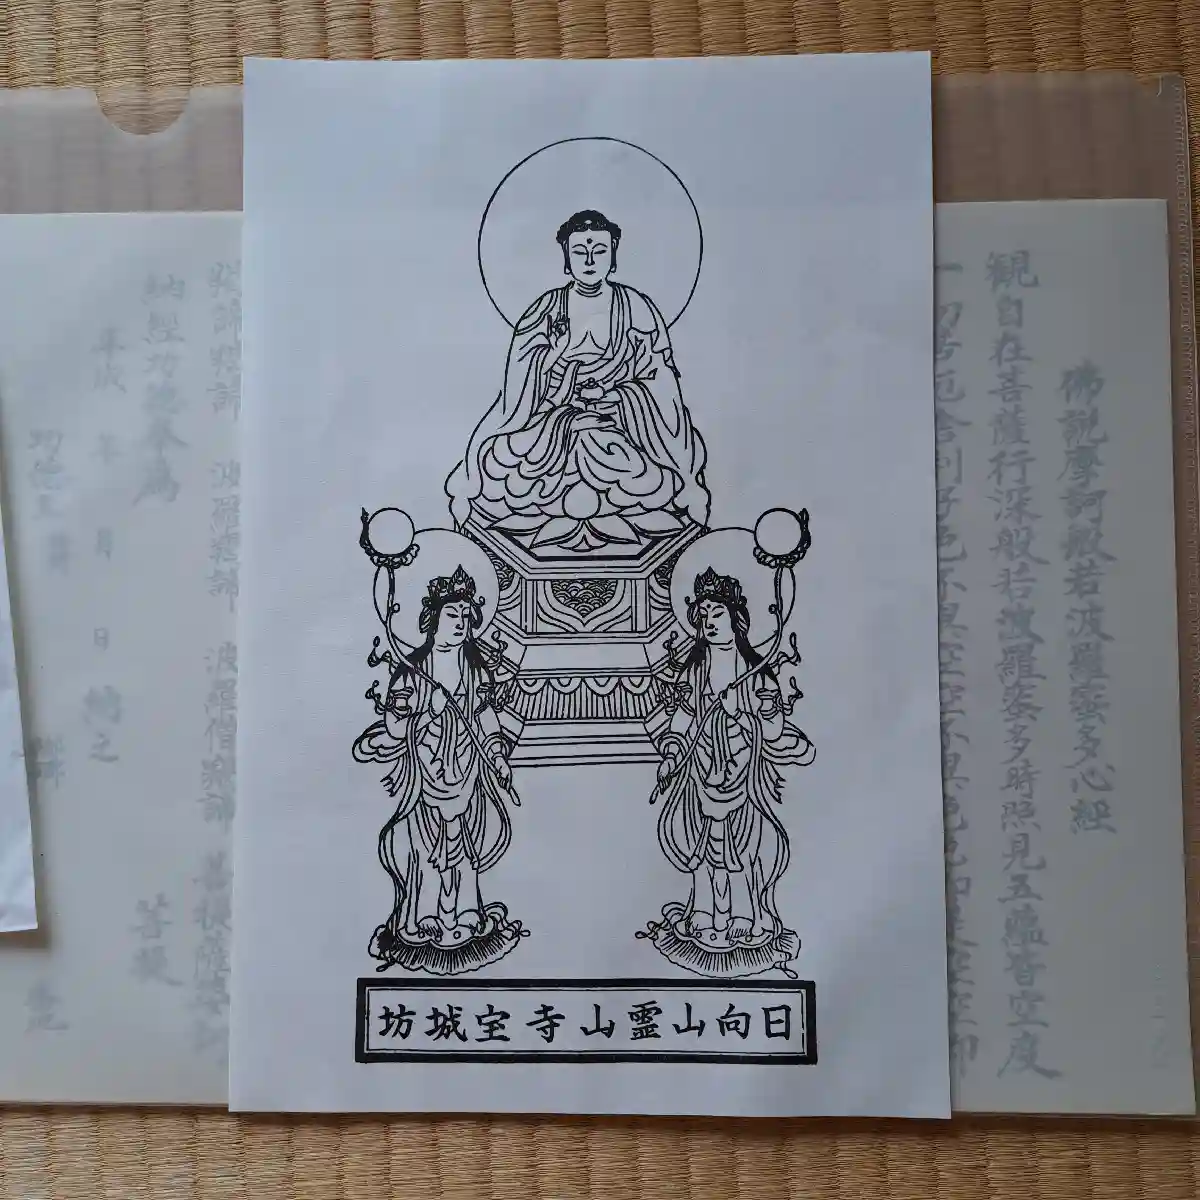 佛説摩訶般若波羅蜜多心經
観自在菩薩行深般若波羅蜜多時照見五蘊皆空度
一切苦厄舎利子色不異空空不異色色即是空空即
日向山霊山寺宝城坊
羯諦羯諦 波羅羯諦 波羅僧羯諦 菩提薩婆訶
納經功徳奉為 菩提
平成 年 月 日 納之
功徳主